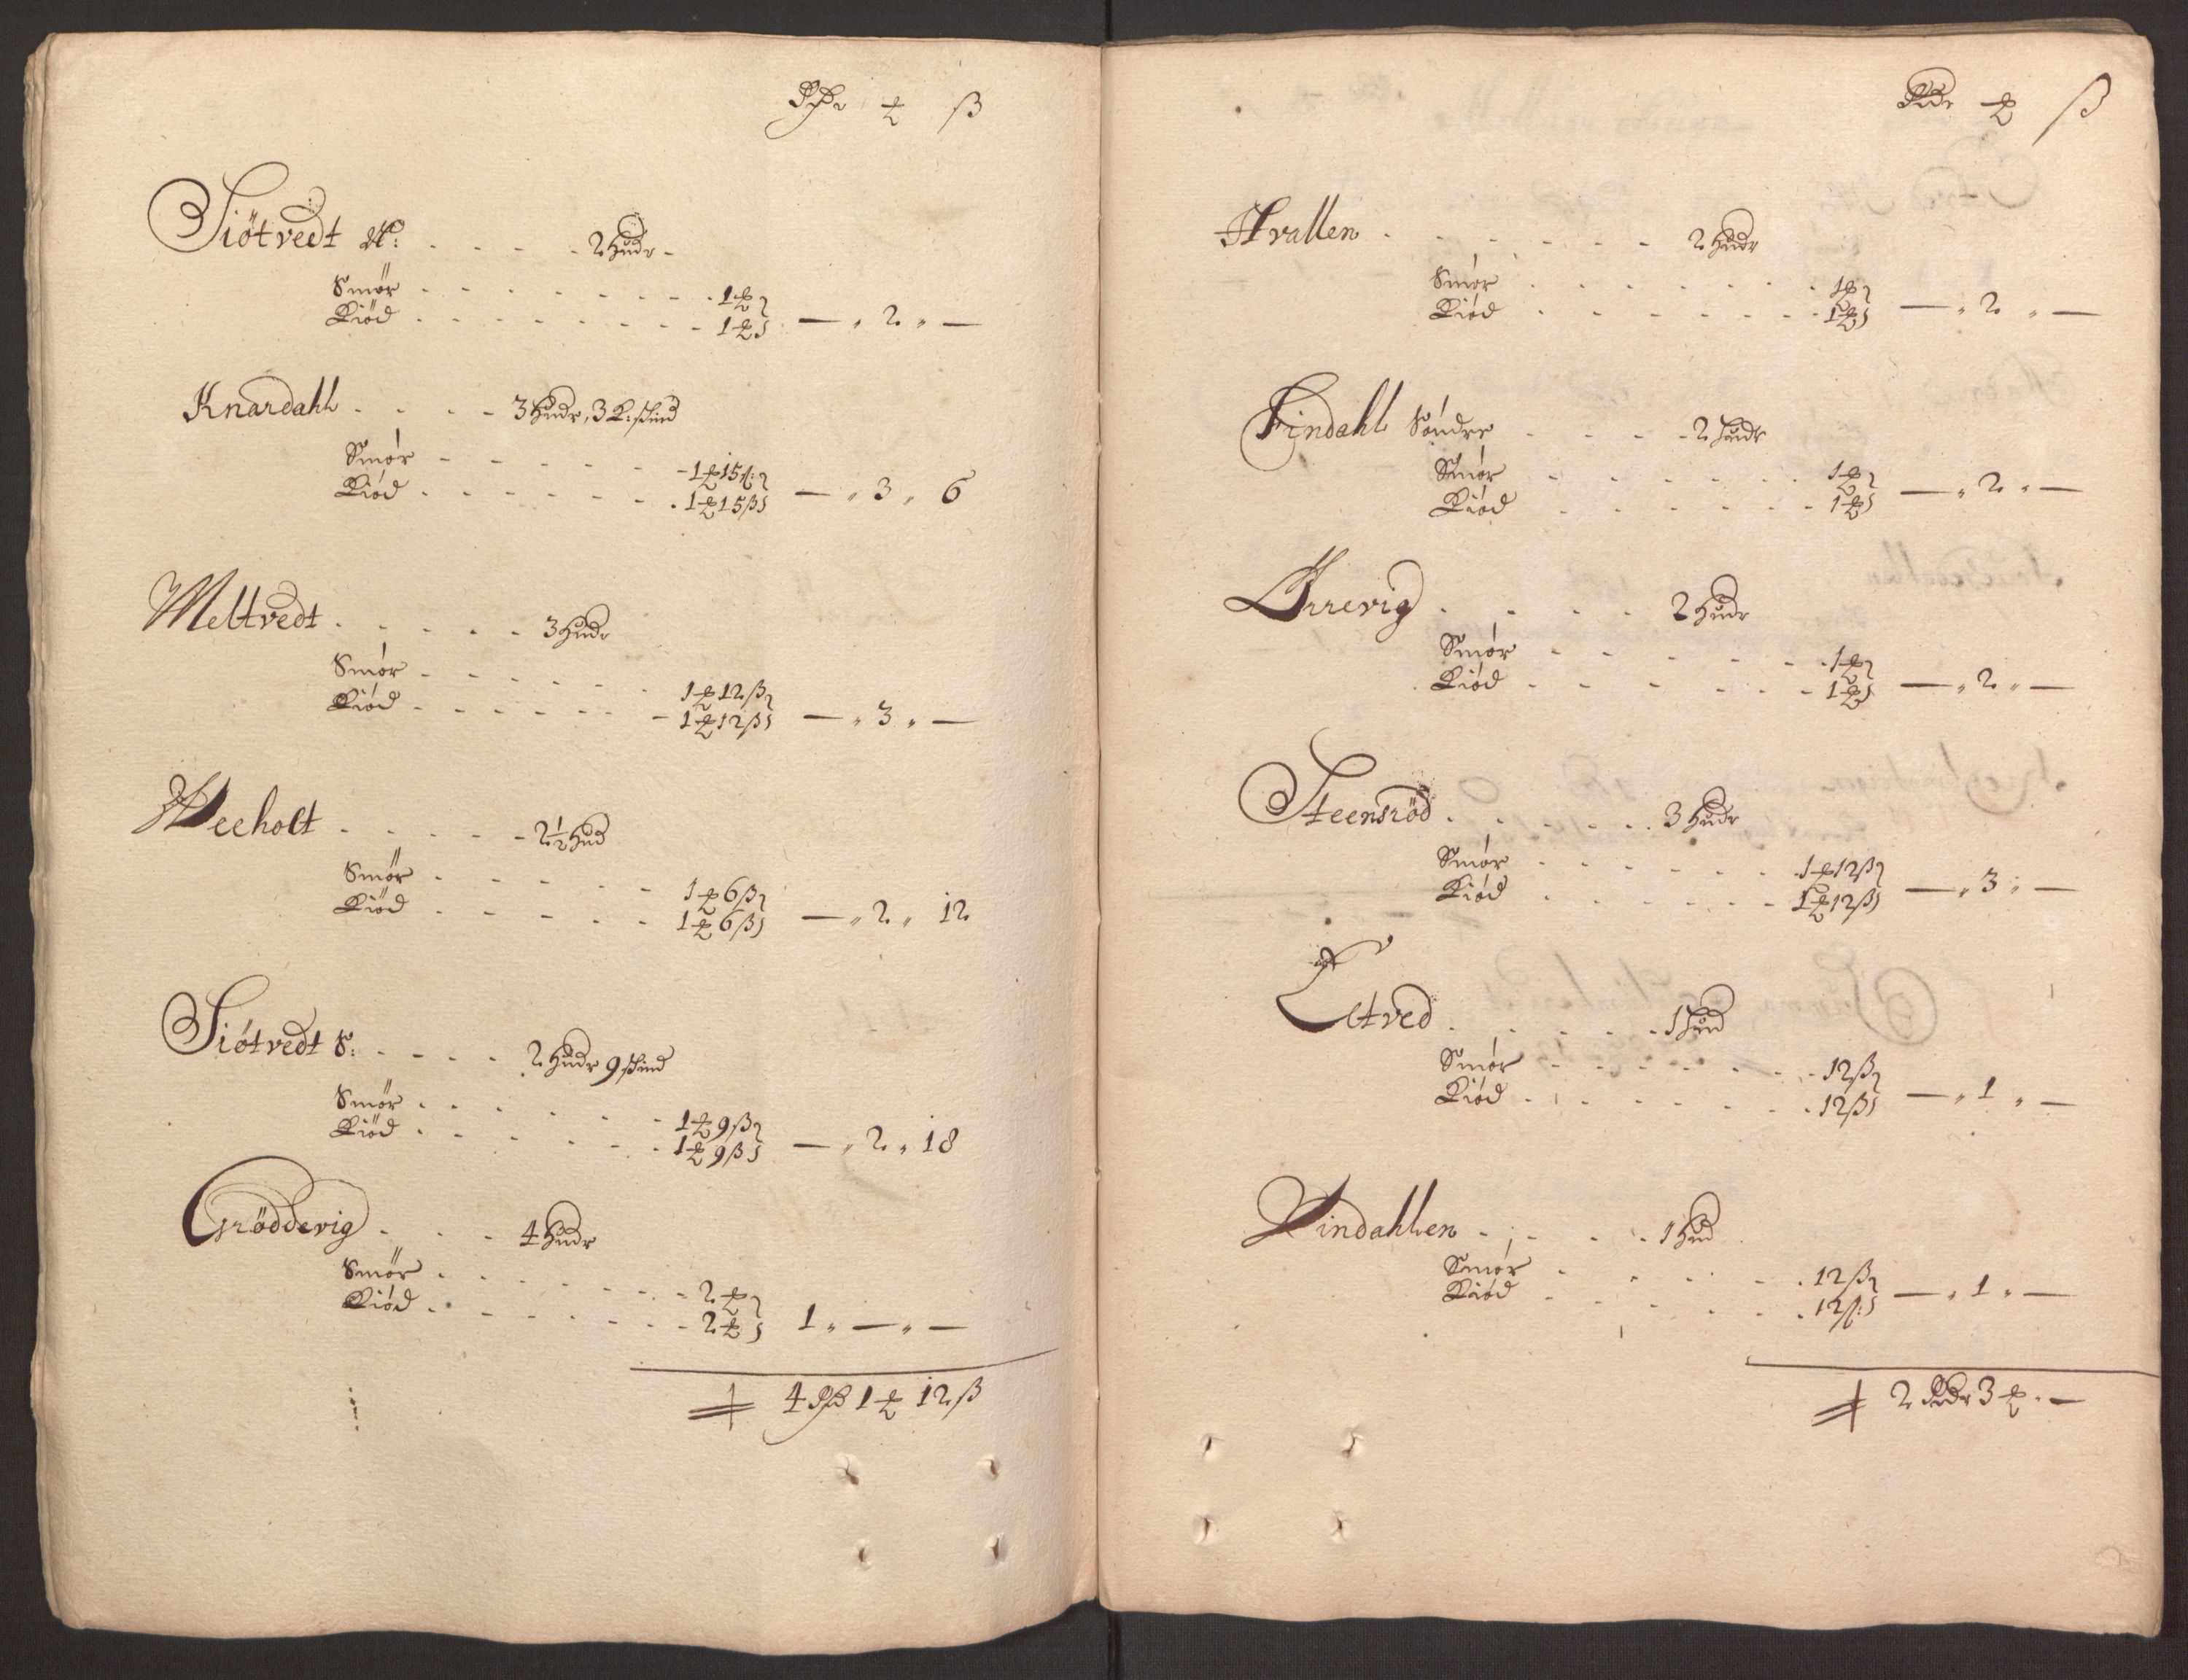 Rdr ₰ ß
Siötvedt N: - - - - 2 hudr -
Smör - - - - - - - 1 ₰
Kiöd - - - - - - - 1 ₰ — " 2 " —
Knardahl - - - - 3 hudr, 3 K: skind
Smór - - - - - - 1 ₰ 15 ß:
Kiód - - - - - - 1 ₰ 15 ß — " 3 " 6
Meltvedt - - - - - 3 hudr
Smór - - - - - - 1 ₰ 12 ß
Kiód - - - - - - 1 ₰ 12 ß — " 3 " —
Weeholt - - - - - 2 1/2 hud
Smör - - - - - 1 ₰ 6 ß
Kiöd - - - - - 1 ₰ 6 ß — " 2 " 12
Siótvedt S: - - - - 2 hudr 9 skind
Smör - - - - - - 1 ₰ 9 ß
Kiöd - - - - - - 1 ₰ 9 ß — " 2 " 18
Gröddevig - - - 4 hudr
Smör - - - - - - 2 ₰
Kiód - - - - - - 2 ₰ 1 " — " —
4 Rdr 1 ₰ 12 ß
Rdr ₰ ß
Hvallen - - - - - - 2 hudr
Smór - - - - - - 1 ₰
Kiód - - - - - - 1 ₰ — " 2 " —
Findahl Söndre - - - - 2 hudr
Smór - - - - - - 1 ₰
Kiód - - - - - - 1 ₰ — " 2 " —
Örrevig - - - - 2 hudr
Smór - - - - - - 1 ₰
Kiód - - - - - - 1 ₰ — " 2 " —
Steensröd - - - - - 3 hudr
Smór - - - - - 1 ₰ 12 ß
Kiód - - - - - 1 ₰ 12 ß — " 3 " —
Etved - - - - - 1 hud
Smór - - - - - - 12 ß
Kiód - - - - - - 12 ß — " 1 " —
Vindahlen - - - - 1 hud
Smór - - - - - 12 ß
Kiód - - - - - 12 ß: — " 1 " —
2 Rdr 3 ₰ " —